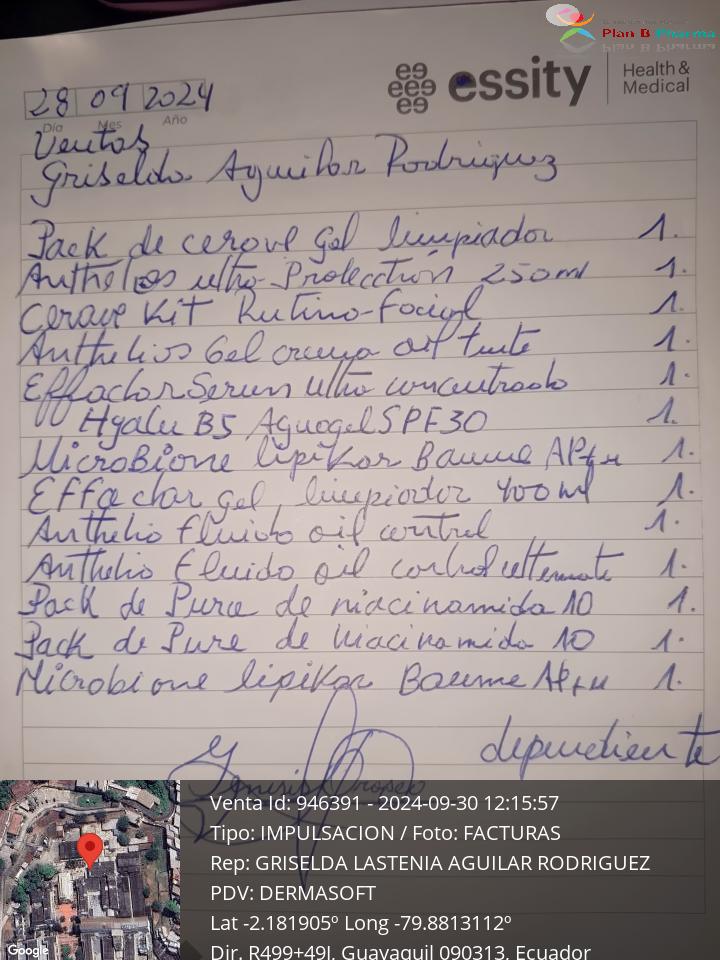 Plan B Pharma
essity
Health & Medical
28 09 2024
Día Mes Año
Ventas
Griselda Aguilar Rodriguez
Pack de cerave gel limpiador 1.
Anthelios ultra Protección 250ml 1.
Cerave Kit Rutina-Facial 1.
Anthelios Gel crema oil tinte 1.
Effaclar Serum ultra concentrado 1.
Hyalu B5 Aquagel SPF30 1.
MicroBione lipikar Baume AP+M 1.
Effaclar gel limpiador 400ml 1.
Anthelio fluido oil control 1.
Anthelio fluido oil control 1.
Pack de Pure de niacinamida 10 1.
Pack de Pure de niacinamida 10 1.
Microbione lipikar Baume AP+M 1.
dependiente
Venta Id: 946391 - 2024-09-30 12:15:57
Tipo: IMPULSACION / Foto: FACTURAS
Rep: GRISELDA LASTENIA AGUILAR RODRIGUEZ
PDV: DERMASOFT
Lat -2.181905º Long -79.8813112º
Dir. R499+49J, Guayaquil 090313, Ecuador
Google